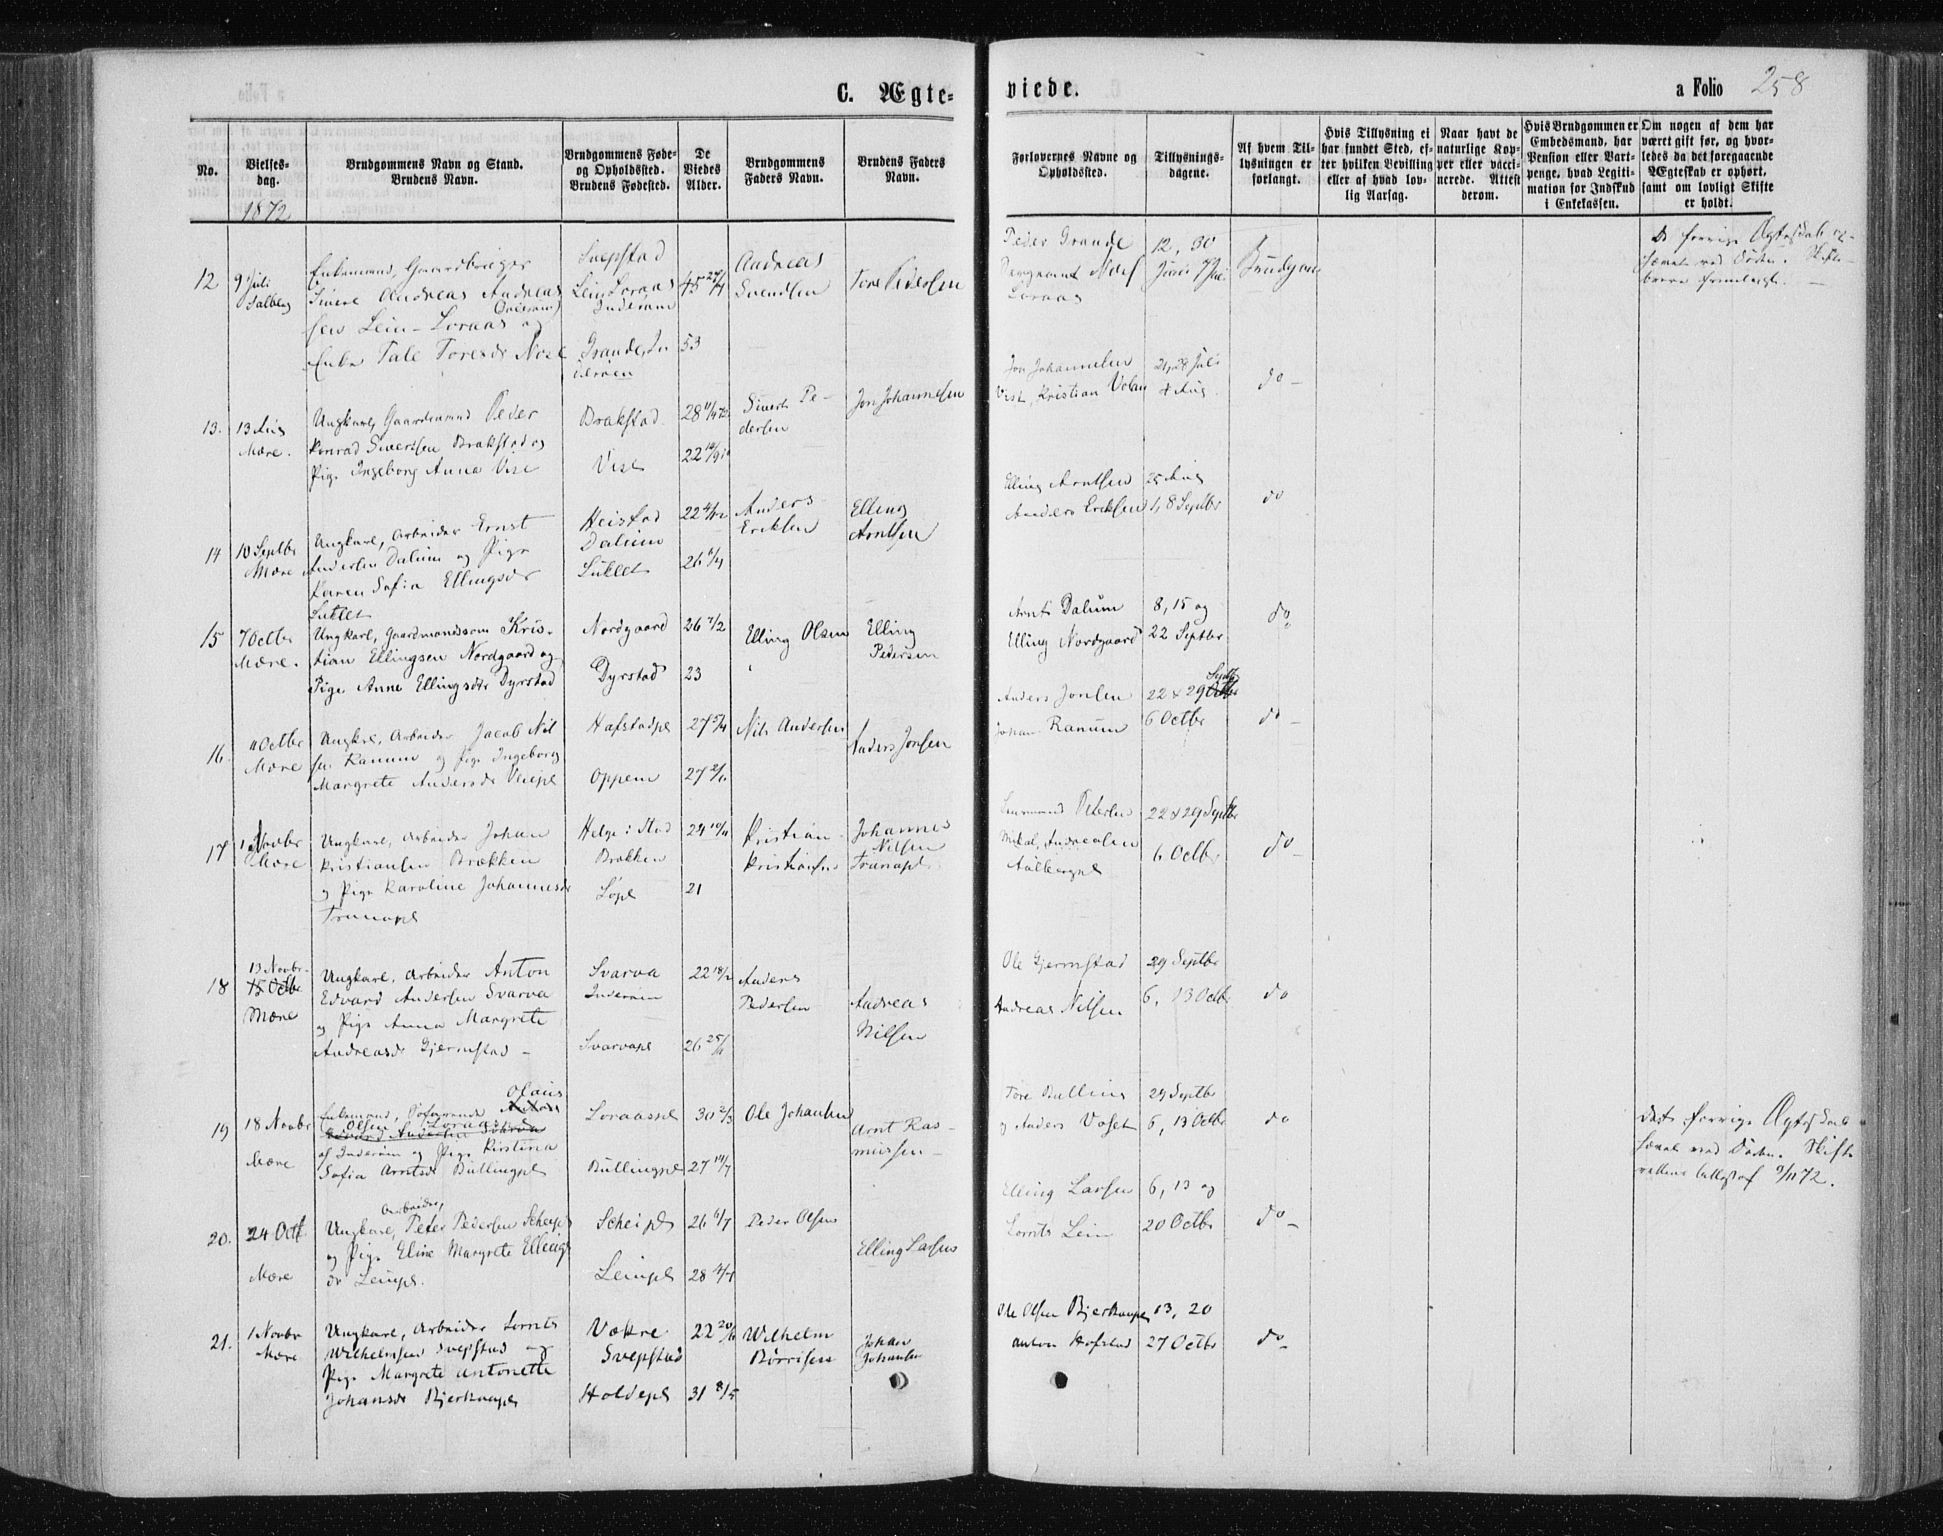 C. Ægte-
viede.
a Folio 258
No.
Vielses-
dag.
1872
Brudgommens Navn og Stand.
Brudens Navn.
Brudgommens Føde-
og Opholdssted.
Brudens Fødested.
De
Viedes
Alder.
Brudgommens
Faders Navn.
Brudens Faders
Navn.
Forlovernes Navne og
Opholdssted.
Tillysnings-
dagene.
Af hvem Til-
lysningen er
forlangt.
Hvis Tillysning ei
har fundet Sted, ef-
ter hvilken Bevilling
eller af hvad lov-
lig Aarsag.
Naar havt de
naturlige Kop-
per eller vacci-
nerede. Attest
derom.
Hvis Brudgommen er
Embedsmand, har
Pension eller Vart-
penge, hvad Legiti-
mation for Indskud
i Enkekassen.
Om nogen af dem har
været gift før, og hvor-
ledes da det foregaaende
Ægteskab er ophørt,
samt om lovligt Skifte
er holdt.
12
9 Juli
Salberg
Enkemand, Gaardbruger
Andreas Andreas
sen Lein-Loraas og
Enke Tale Toresdr
Svepstad
Lein Loraas
Inderøen
Grande, In
derøen
45 27/4
53
Andreas
Svendsen
Tore Pedersen
Peder Grande
Loraas
12, 30
Juni 7 Juli
Brudgom
13.
13 Aug
Mære.
Ungkarl, Gaardmand Peder
Konrad Sivertsen Brakstad og
Pige Ingeborg Anna Vist
Brakstad
Vist
28
22
Sivert Pe-
dersen
Jon Johannesen
Jon Johannesen
Vist, Kristian Volan
21, 28 Juli
4 Aug.
do -
14
10 Septbr
Mære
Ungkarl, Arbeider Ernst
Andersen Dalum og Pige
Karen Sofia Ellingsdr
Heistad
Dalum
22
26 6/4
Anders
Eriksen
Elling
Arntsen
Elling Arntsen
Anders Eriksen
25 Aug
1, 8 Septbr
do
15
7 Octbr
Mære.
Ungkarl, Gaardmandssøn Kris-
tian Ellingsen Nordgaard og
Pige Anne Ellingsdtr Dyrstad
Nordgaard
Dyrstad
26 7/2
23
Elling Olsen
Elling
Pedersen
Arnt Dalum
Elling Nordgaard
8, 15 og
22 Septbr
do
16.
11 Octbr
Mære
Ungkarl, Arbeider Jacob Nil
sen Ranum og Pige Ingeborg
Margrete Andersdr
Hafstadpl
Oppem
27 5/4
27 2/6
Nils Andersen
Anders Jonsen
Anders Jonsen
Johan Ranum
22 & 29 Septbr
6 Octbr
do -
17
1 Novbr
Mære
Ungkarl, Arbeider Johan
Kristiansen Brækken
og Pige Karoline Johannesdr
Tranapl
Helge i Stod
Brækken
24
21
Kristian
Kristiansen
Johannes
Nilsen
Tranapl
Petersen
Mikal Andreasen
22 & 29 Septbr
6 Octbr
do -
18
13 Novbr
15 Octbr
Mære
Ungkarl, Arbeider Anton
Edvard Andersen Svarva
og Pige Anna Margrete
Andreasdr Gjermstad -
Svarva
Inderøen
Svarvapl
22 18/2
26
Anders
Pedersen
Andreas
Nilsen
Ole Gjermstad
Andreas Nilsen
29 Septbr
6, 13 Octbr
do
19
18 Novbr
Mære
Enkemand, Olaus
Olsen Loraas
Edvard Andersen Svarva
af Inderøen og Pige Kirstina
Sofia Arntsdr Bullingpl
Loraaspl
Bullingpl
30 2/3
27 14/7
Ole Johansen
Arnt Ras-
mussen -
Tore Bulling
og Anders Voset
29 Septbr
6, 13 Octbr
do
20.
24 Oct
Mære
Arbeider,
Ungkarl, Peter Pedersen Scheipl
og Pige Eline Margrete Ellings
dr Leinpl.
Scheipl
Leinpl
26 6/7
28
Peder Olsen
Elling Larsen
Elling Larsen
Lornts Lein
6, 13 og
20 Octbr
do -
21.
1 Novbr
Mære
Ungkarl, Arbeider Lornts
Wilhelmsen Svepstad og
Pige Margrete Antonette
Johansdr
Vækre
Svepstad
Holdepl
22
31 8/5
Wilhelm
Børrisen
Johan
Johansen
Ole Olsen
Anton Hofstad
13, 20
27 Octbr
do -